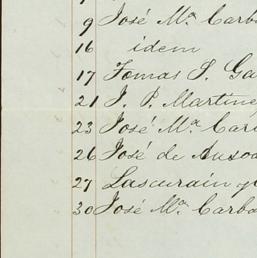 9 José Ma. Carba
16 idem
17 Tomas S. Ga
21 J. P. Martine
23 José Ma. Car
26 José de Ansoa
27 Lascurain y
30 José Ma. Carba